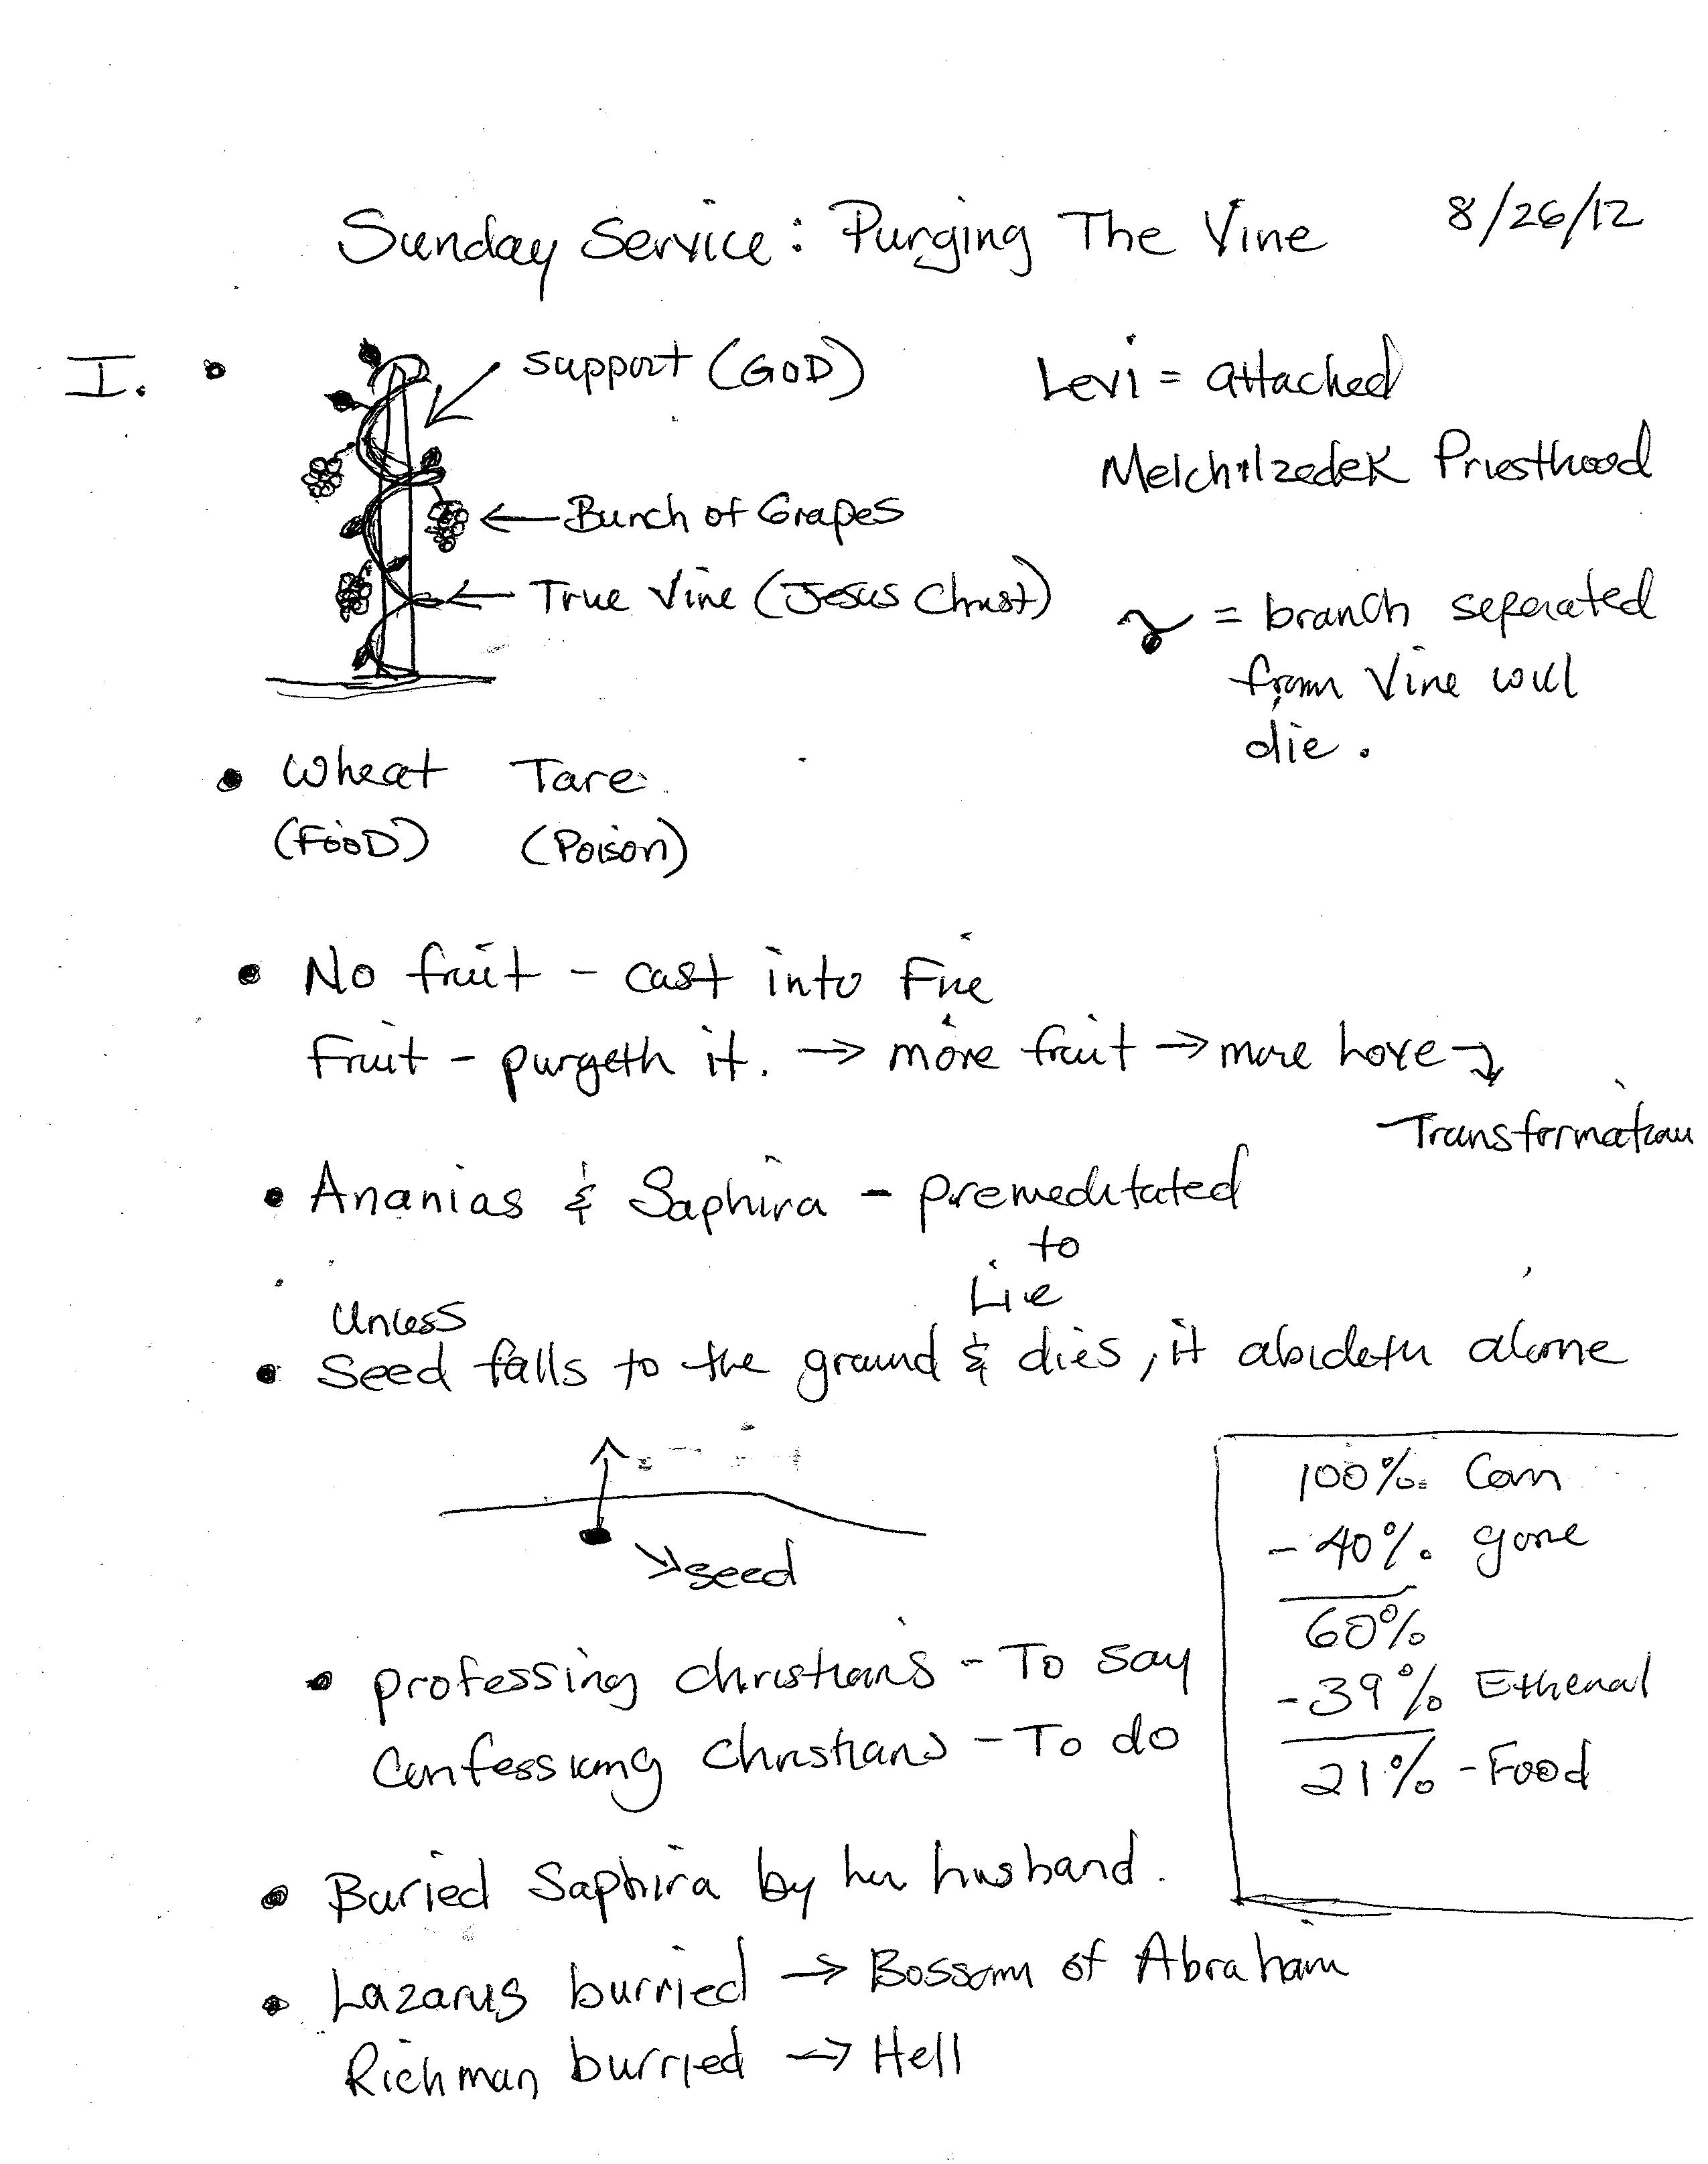 Sunday Service: Purging The Vine 8/26/12
I.
support (GOD)
Bunch of Grapes
True Vine (Jesus Christ)
Levi = attached
Melchilzedek Priesthood
= branch seperated
from Vine will
die.
Wheat Tare
(FOOD) (Poison)
No fruit - cast into Fire
Fruit - purgeth it. → more fruit → more love →
Transformation
Ananias & Saphira - premeditated
to
Lie
Unless
Seed falls to the ground & dies, it abideth alone
seed
professing christians - To say
Confessiong Christians - To do
100% Corn
-40% gone
60%
-39% Ethenal
21% - Food
Buried Saphira by her husband.
Lazarus burried → Bossom of Abraham
Richman burried → Hell